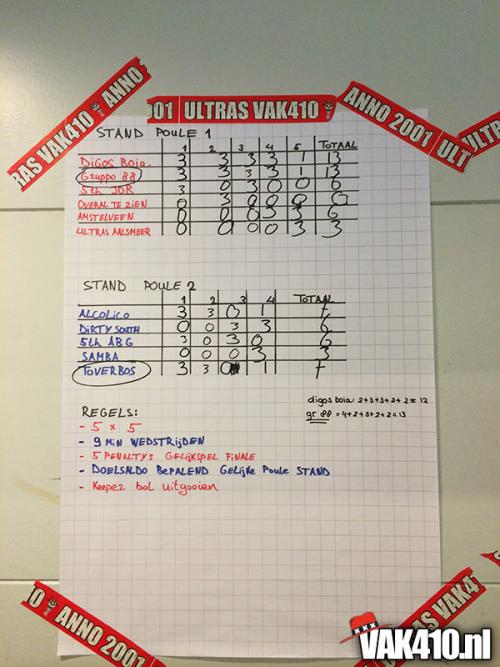 ANNO
RAS VAK410
2001 ULTRAS VAK410
ANNO 2001 ULT
ULTRAS
STAND POULE 1
1 2 3 4 5 TOTAAL
DiGOS BOiA 3 3 3 3 1 13
Gruppo 88 3 3 3 3 1 13
5th JDR 3 0 3 0 0 6
OVERAL TE ZIEN 0 3 0 0 0
AMSTELVEEN 0 0 0 3 3 6
ULTRAS AALSMEER 0 0 0 0 3 3
STAND POULE 2
1 2 3 4 TOTAAL
ALCOLiCO 3 3 0 1 7
DiRTY SOUTH 0 0 3 3 6
5th ABG 3 0 3 0 6
SAMBA 0 0 0 3 3
TOVERBOS 3 3 0 1 7
digos boia: 2+3+3+2+2 = 12
gr 88 = 4+2+3+2+2 = 13
REGELS:
- 5 x 5
- 9 Min WEDSTRiJDEN
- 5 PENALTYS GELiJKSPEL FiNALE
- DOELSALDO BEPALEND GELiJKE POULE STAND
- Keeper bal uitgooien
0 ANNO 2001
VAK4
VAK410.nl